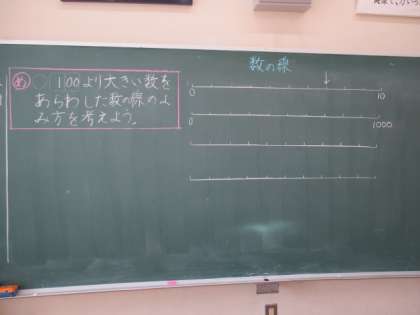 数の線
め 100より大きい数を
あらわした数の線のよ
み方を考えよう。
↓
0 10
0 1000